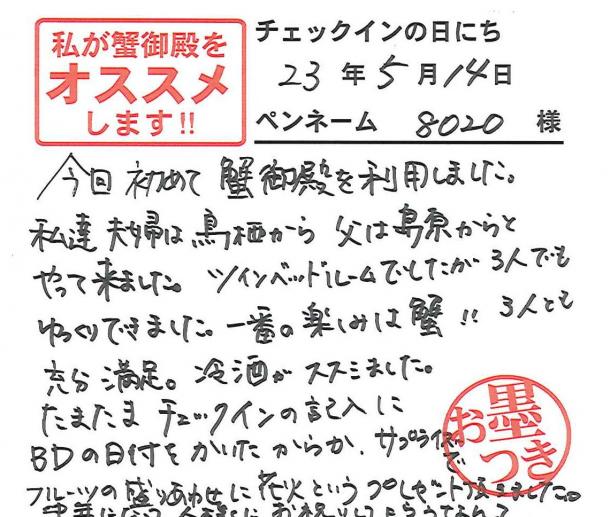 私が蟹御殿を
オススメ
します!!
チェックインの日にち
23年5月14日
ペンネーム 8020 様
今回初めて蟹御殿を利用しました。
私達夫婦は鳥栖から父は島原からと
やって来ました。ツインベッドルームでしたが3人でも
ゆっくりできました。一番の楽しみは蟹!! 3人とも
充分満足。冷酒がススミました。
たまたまチェックインの記入に
BDの日付をかいたからか、サプライズで
フルーツの盛りあわせに花火というプレゼント頂きました。
お墨つき